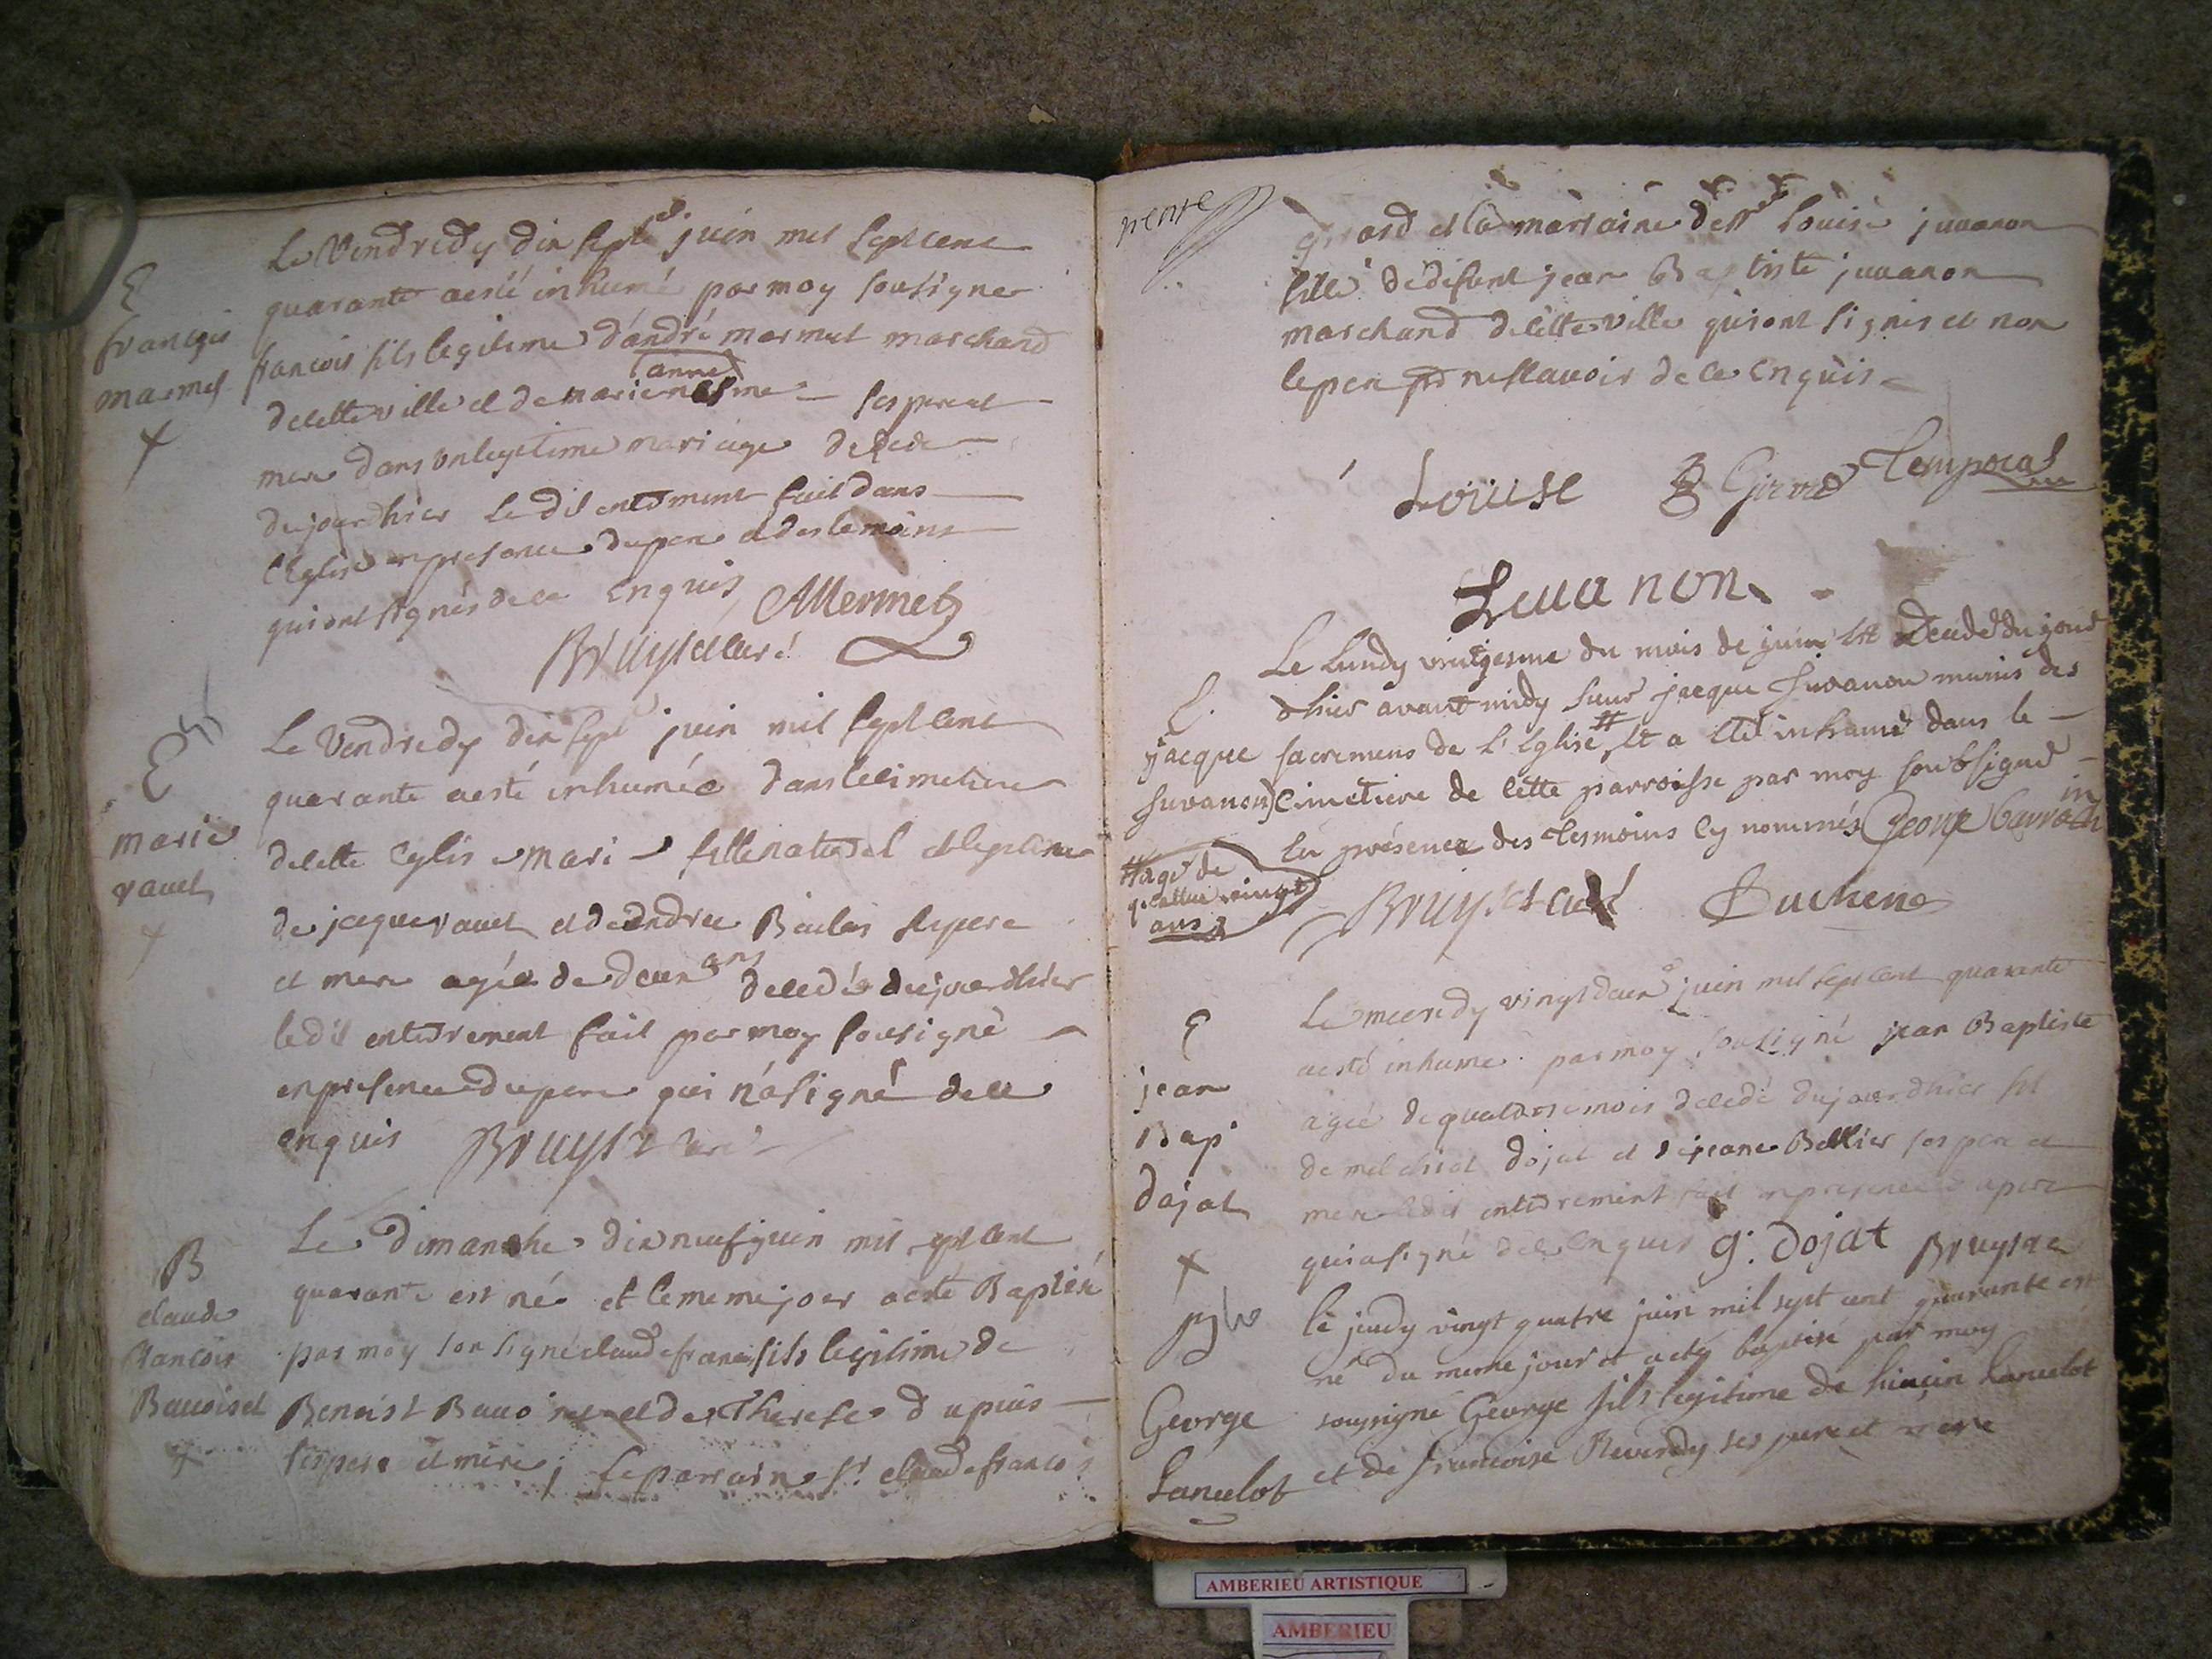 E
françois
marmet
+
Le Vendredy dix sept juin mil sept cent
quarante a esté inhumé par moy sousigne
francois fils legitime d'andré mermet marchand
de cette ville et de marie anne ses pere et
mere dans un legitime mariage decede
du jourdhier le dit enterment fait dans
l'Eglise en presence du pere et des temoins
qui ont signés de ce enquis AMermet
Bruyset curé
E
marie
ravet
+
Le Vendredy dix sept juin mil sept cent
quarante a esté inhumée dans le cimetiere
de cette Eglise marie fille naturel et legitime
de jacque ravet et de andree ses pere
et mere agée de deux ans decedée du jourdhier
le dit enterrement fait par moy sousigné
en presence du pere qui n'a signé de ce
enquis Bruyset curé
B
claude
francois
Bauoiset
+
Le dimanche dix neuf juin mil sept cent
quarante est né et le meme jour a esté Baptisé
par moy sousigné claude francois fils legitime de
Benoist et de Therese dupuis
ses pere et mere; le parrain sr claude francois
trente
girard et la marraine delle Louise juuanon
fille de defunt jean Baptiste juuanon
marchand de cette ville qui ont signés et non
le pere pr ne scavoir de ce Enquis
Louise Girard Temporal
Juuanon
E.
jacque
Juvanon
# agé de
quattre vingt
ans
Le Lundy vintjesme du mois de juin est decedé du jour
dhier avant midy sieur jacque Juvanon munis des
sacremens de L'Eglise # et a eté inhumé dans le
Cimetiere de cette parroisse par moy soubsigné
En présence des Tesmoins Cy nommés George
Bruyset curé Duchene
E
jean
Bap.
dojat
+
Le mecredy vingt deux juin mil sept cent quarante
a esté inhumé par moy sousigné jean Baptiste
agée de quatorse mois decedé du jour dhier fil
de melchiot dojat et de jeane Bellier ses pere et
mere le dit enterrement fait en presence du pere
qui a signé de ce enquis g. dojat Bruyset
George
Lancelot
le jeudy vingt quatre juin mil sept cent quarante est
né du meme jour et a eté baptisé par moy
soussigné George fils legitime de Lancelot
et de francoise Reverdy ses pere et mere
AMBERIEU ARTISTIQUE
AMBERIEU